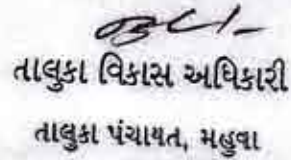 તાલુકા વિકાસ અધિકારી
તાલુકા પંચાયત, મહુવા